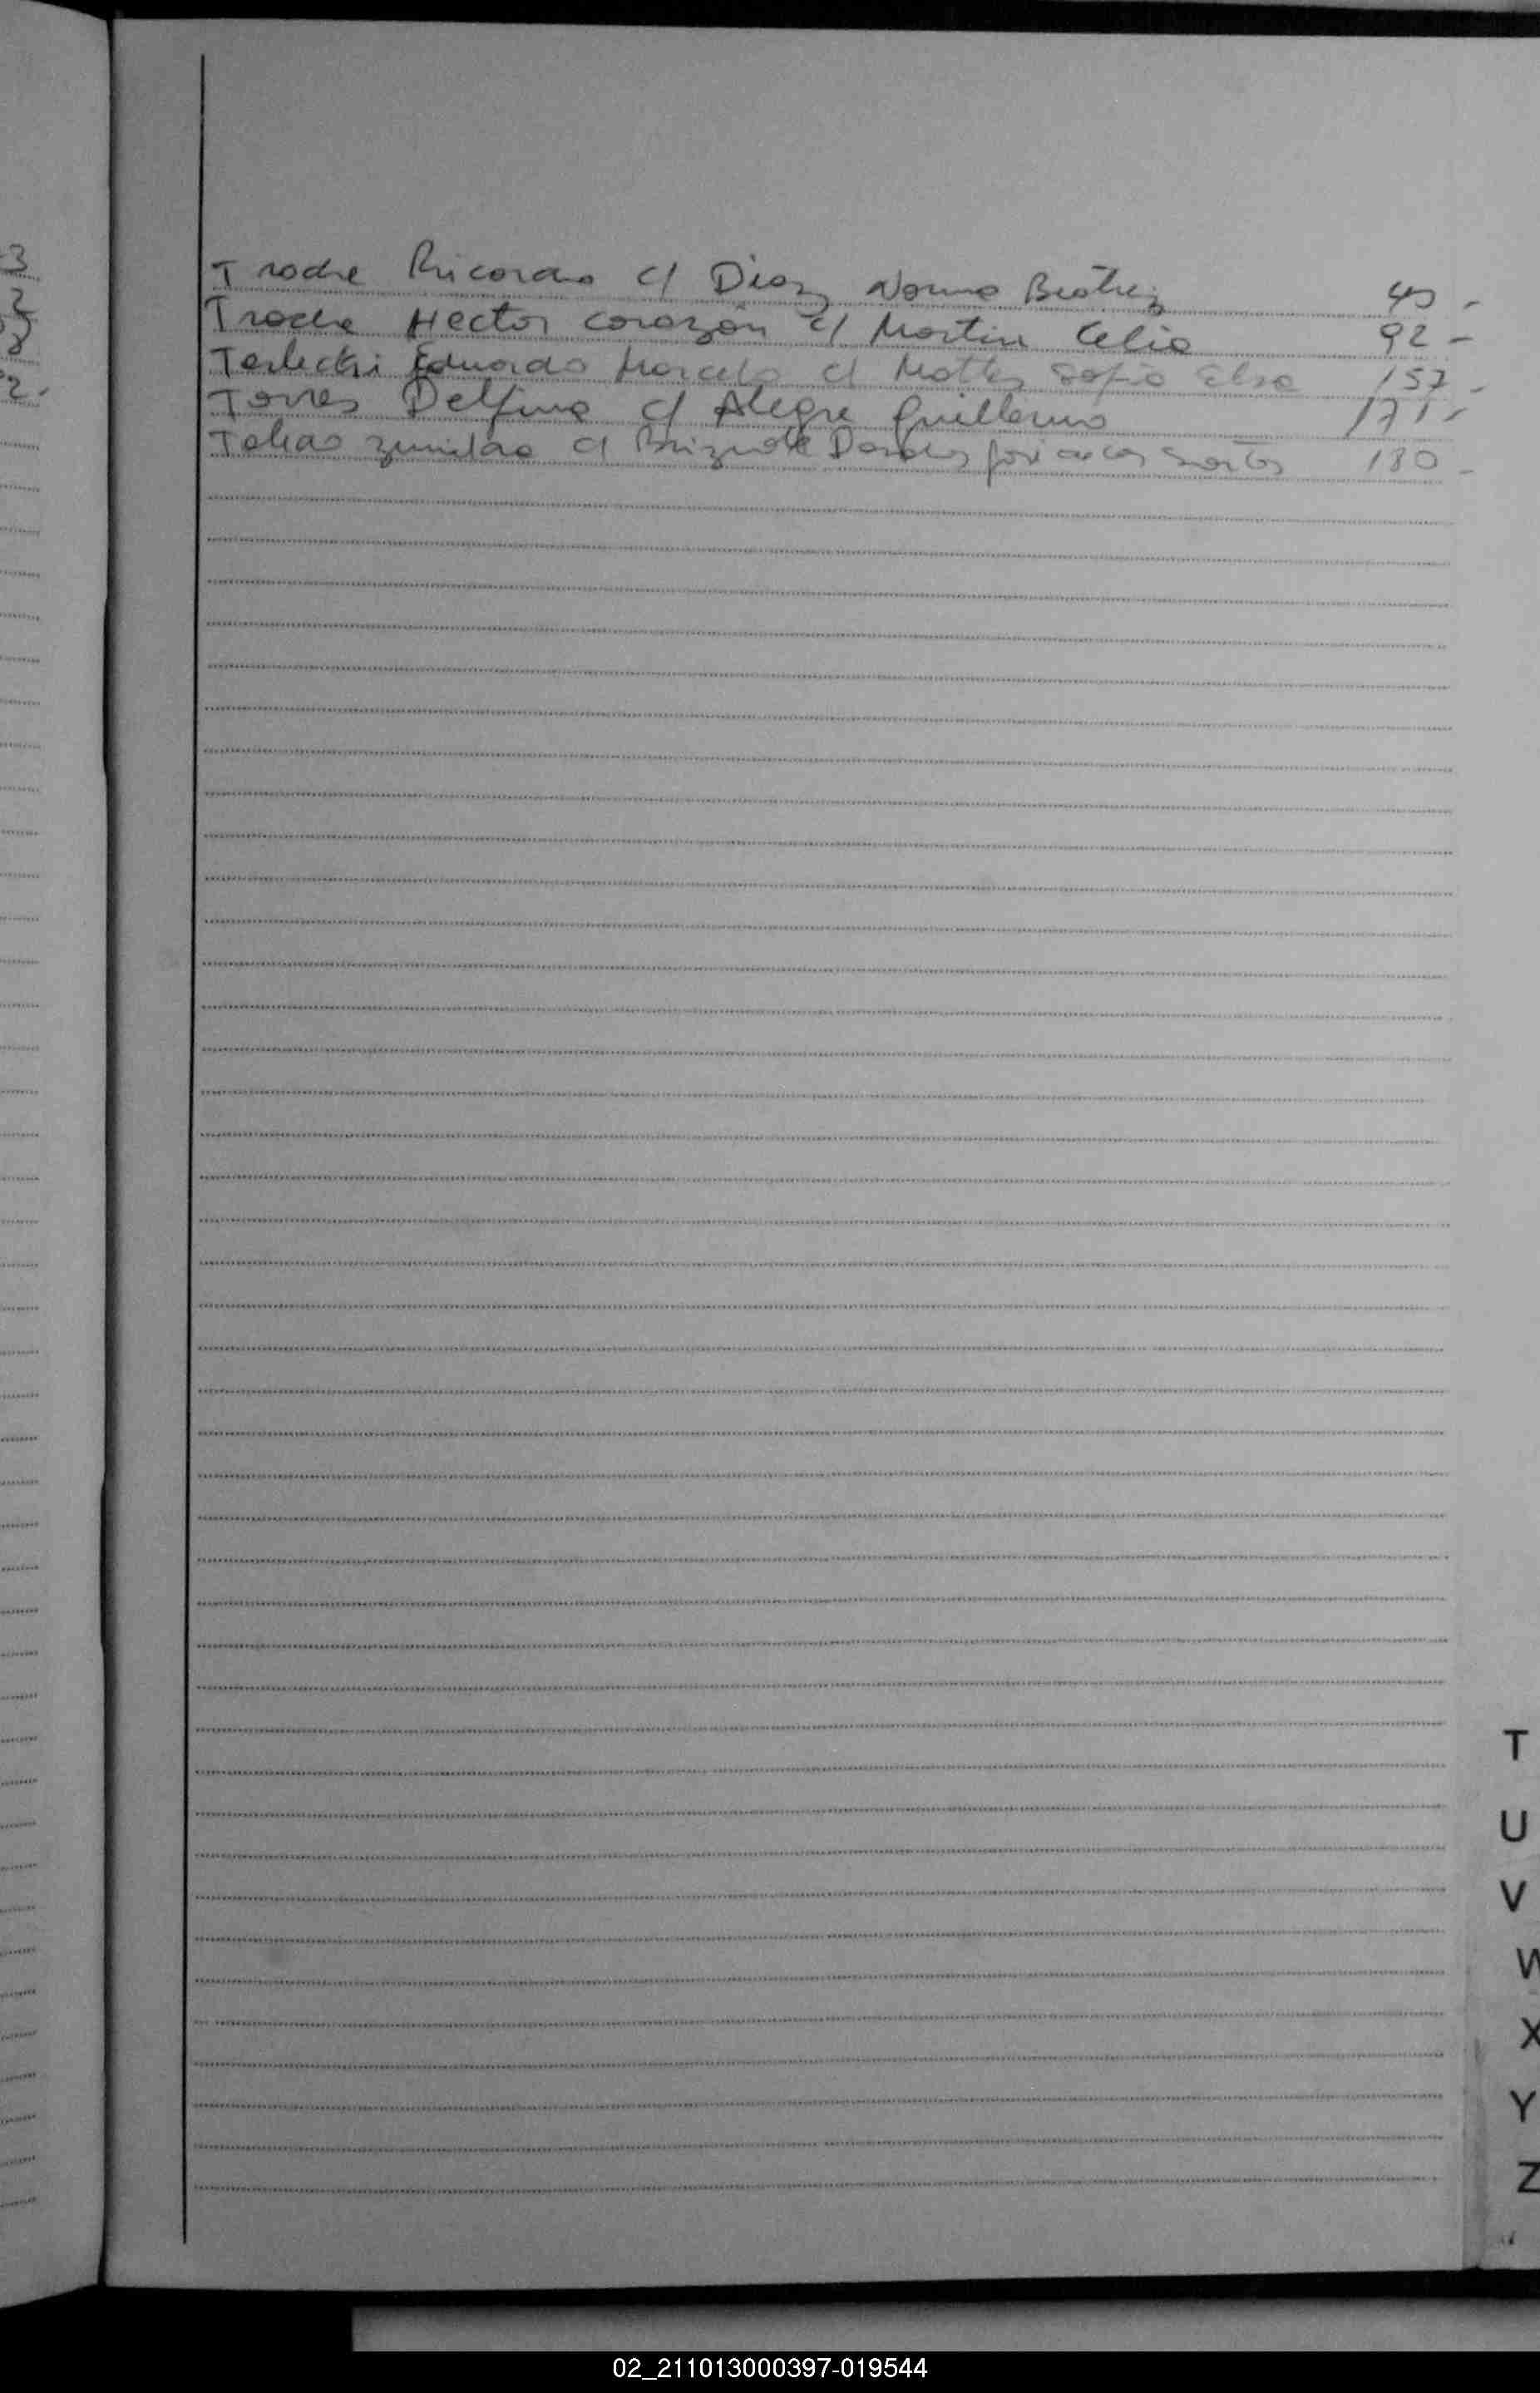 Troche Ricardo c/ Diaz Norma Beatriz
Troche Hector Corazón c/ Martin Celia 92 -
Terlecki Eduardo Marcelo c/ Mattes Sofia Elsa 157 -
Torres Delfina c/ Alegre Guillermo 171 -
c/ Brizuela de los Santos 180 -
T
U
V
W
X
Y
Z
02_211013000397-019544